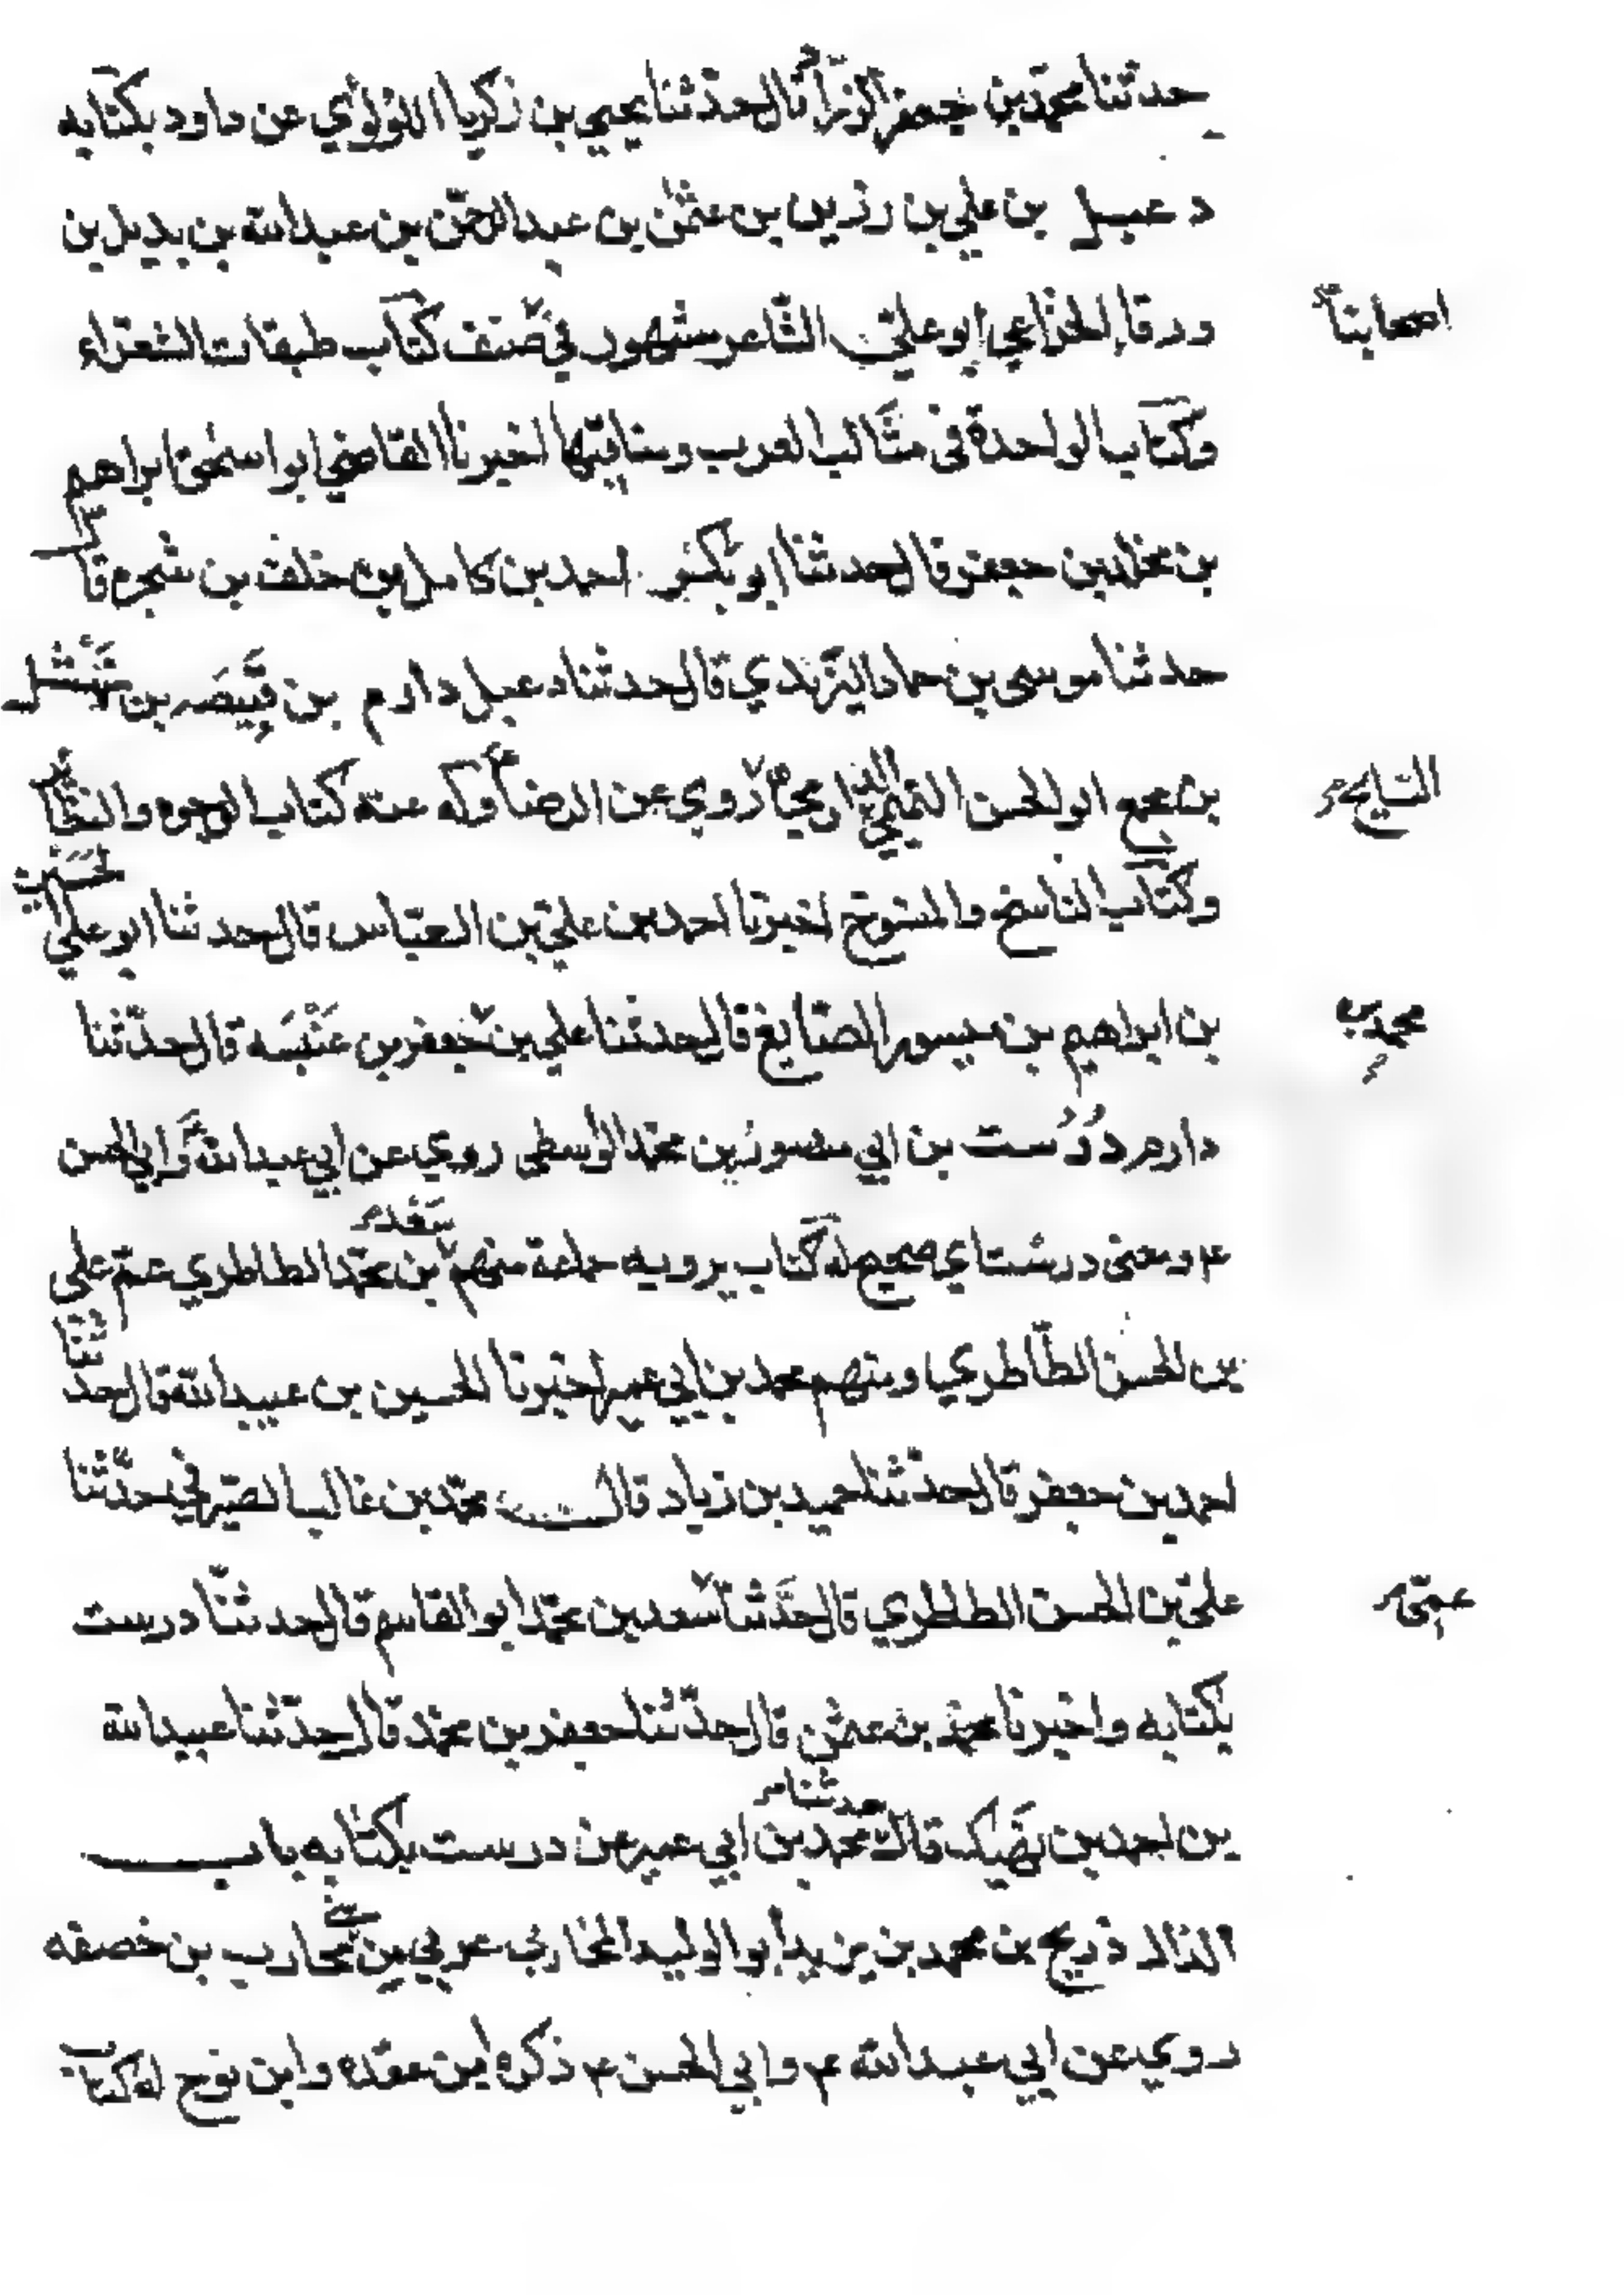 حدثنا محمد بن جعفر الرزاز قال حدثنا يحيى بن زكريا اللؤلؤي عن داود بكتابه
دعبل بن علي بن رزين بن عثمن بن عبد الرحمن بن عبد الله بن بديل بن
ورقا الخزاعي ابو علي الشاعر مشهور في اصحابنا صنف كتاب طبقات الشعراء
وكتاب الواحدة في مثالب العرب ومناقبها اخبرنا القاضي ابو اسحق ابراهيم
بن مخلد بن جعفر قال حدثنا ابو بكر احمد بن كامل بن خلف بن شجره قال
حدثنا موسى بن حماد اليزيدي قال حدثنا دعبل دارم بن قبيصه بن نهشل
بن مجمع ابو الحسن التميمي الدارمي السايح روى عن الرضا وله عنه كتاب الوجوه والنظاير
وكتاب الناسخ والمنسوخ اخبرنا احمد بن علي بن العباس قال حدثنا ابو علي الحسين بن
محمد بن ابراهيم بن ميسور الصايغ قال حدثنا علي بن محمد بن جعفر بن عنبسه قال حدثنا
دارم درست بن ابي منصور بن محمد الواسطي روى عن ابي عبد الله وابي الحسن
ع ومعنى درست اي صحيح له كتاب يرويه جماعة منهم سعد بن محمد الطاطري عم علي
بن الحسن الطاطري ومنهم محمد بن ابي عمير اخبرنا الحسين بن عبيد الله قال حدثنا
احمد بن جعفر قال حدثنا حميد بن زياد قال محمد بن غالب الصيرفي حدثنا
علي بن الحسن الطاطري قال حدثنا عمي سعد بن محمد ابو القاسم قال حدثنا درست
بكتابه واخبرنا محمد بن عثمن قال حدثنا جعفر بن محمد قال حدثنا عبيد الله
بن احمد بن نهيك قال حدثنا محمد بن ابي عمير عن درست بكتابه باب
الذال ذريح بن محمد بن يزيد ابو الوليد المحاربي عربي من بني محارب بن خصفه
روى عن ابي عبد الله ع وابي الحسن ع ذكره ابن عقده وابن نوح له كتاب